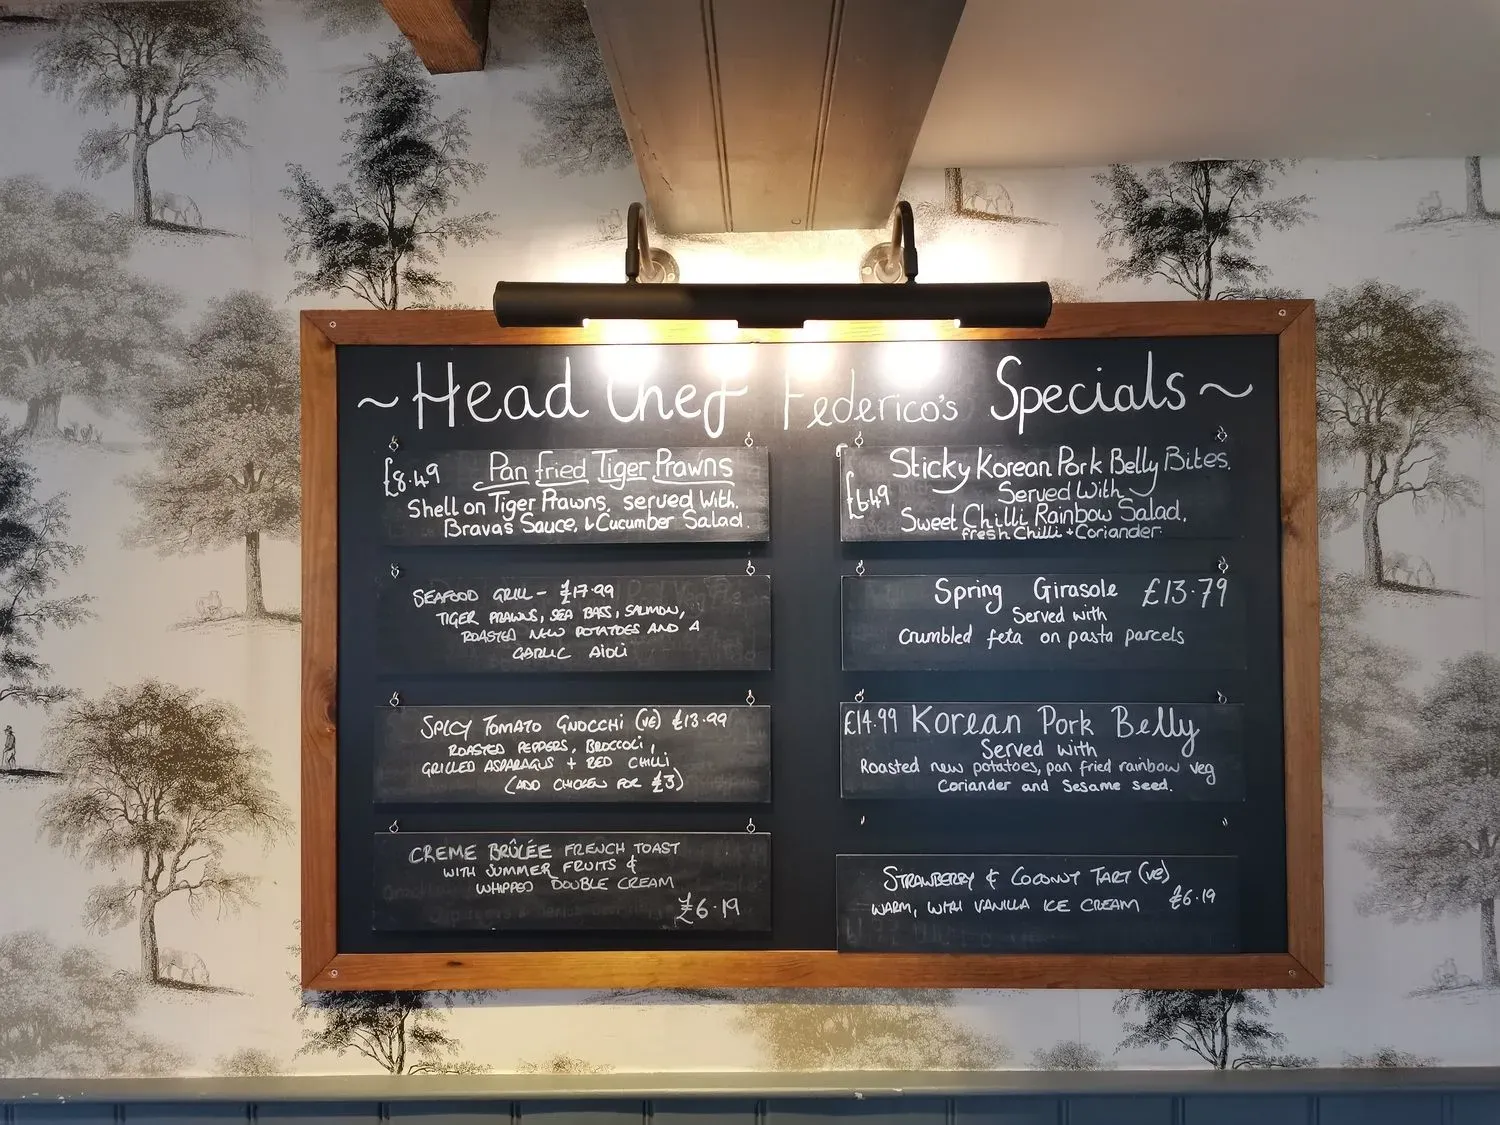 ~ Head Chef Federico's Specials ~
£8.49 Pan fried Tiger Prawns
Shell on Tiger Prawns, served with.
Bravas Sauce, & Cucumber Salad.
SEAFOOD GRILL - £17.99
TIGER PRAWNS, SEA BASS, SALMON,
ROASTED NEW POTATOES AND A
GARLIC AIOLI
SPICY TOMATO GNOCCHI (VE) £13.99
ROASTED PEPPERS, BROCCOLI,
GRILLED ASPARAGUS + RED CHILLI
(ADD CHICKEN FOR £3)
CREME BRÛLÉE FRENCH TOAST
WITH SUMMER FRUITS &
WHIPPED DOUBLE CREAM
£6.19
£6.49 Sticky Korean Pork Belly Bites.
Served With
Sweet Chilli Rainbow Salad,
fresh Chilli + Coriander.
Spring Girasole £13.79
Served with
Crumbled feta on pasta parcels
£14.99 Korean Pork Belly
Served with
Roasted new potatoes, pan fried rainbow veg
Coriander and Sesame seed.
STRAWBERRY & COCONUT TART (VE)
WARM, WITH VANILLA ICE CREAM £6.19